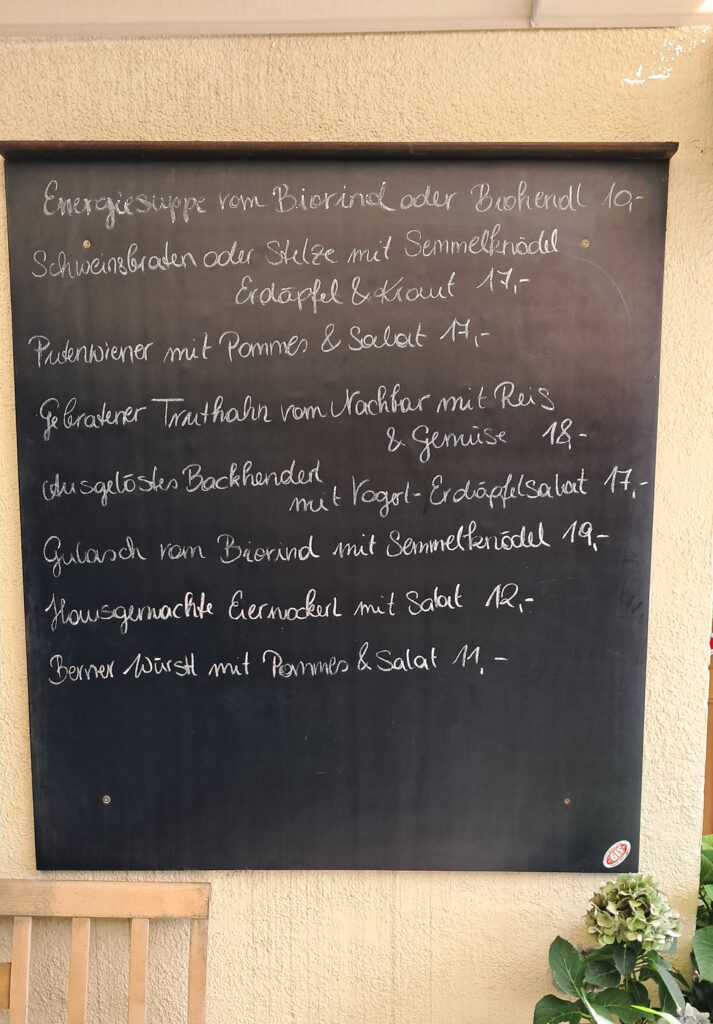 Energiesuppe vom Biorind oder Biohendl 10,-
Schweinsbraten oder Stelze mit Semmelknödel
Erdäpfel & Kraut 17,-
Putenwiener mit Pommes & Salat 17,-
Gebratener Truthahn vom Nachbar mit Reis
& Gemüse 18,-
Ausgelöstes Backhenderl
mit Vogerl-Erdäpfelsalat 17,-
Gulasch vom Biorind mit Semmelknödel 19,-
Hausgemachte Eiernockerl mit Salat 12,-
Berner Würstl mit Pommes & Salat 11,-